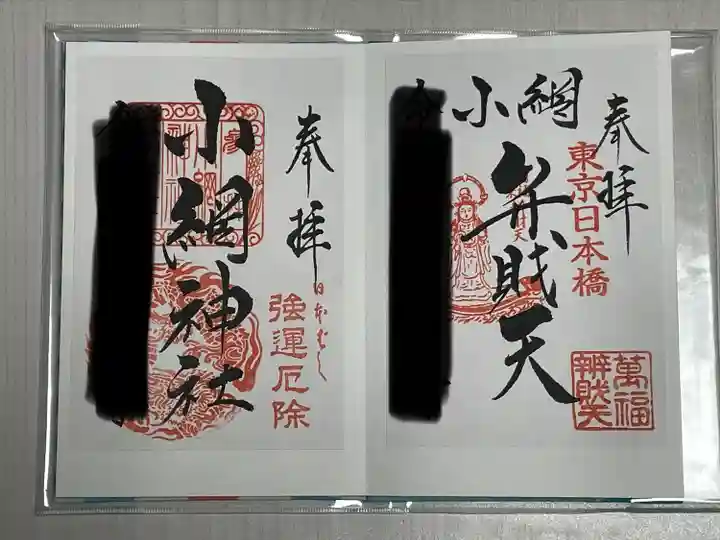 奉拝
東京日本橋
小網
弁財天
萬福
辨財天
奉拝
日本ばし
強運厄除
小網神社